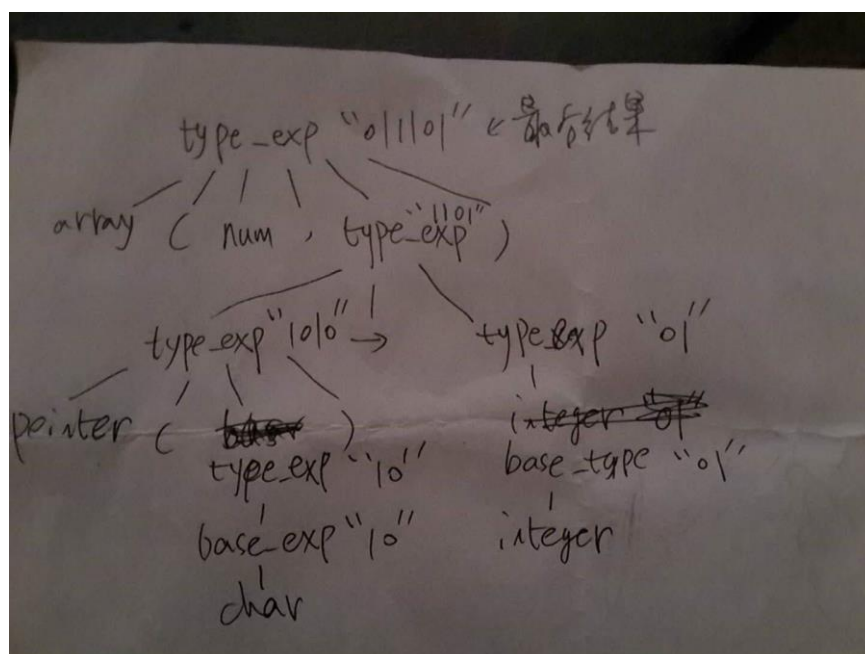 type_exp "01101" ← 最后结果
array ( num , type_exp "1101" )
type_exp "1010" → type_exp "01"
pointer ( )
integer "01"
type_exp "10" base_type "01"
base_exp "10" integer
char